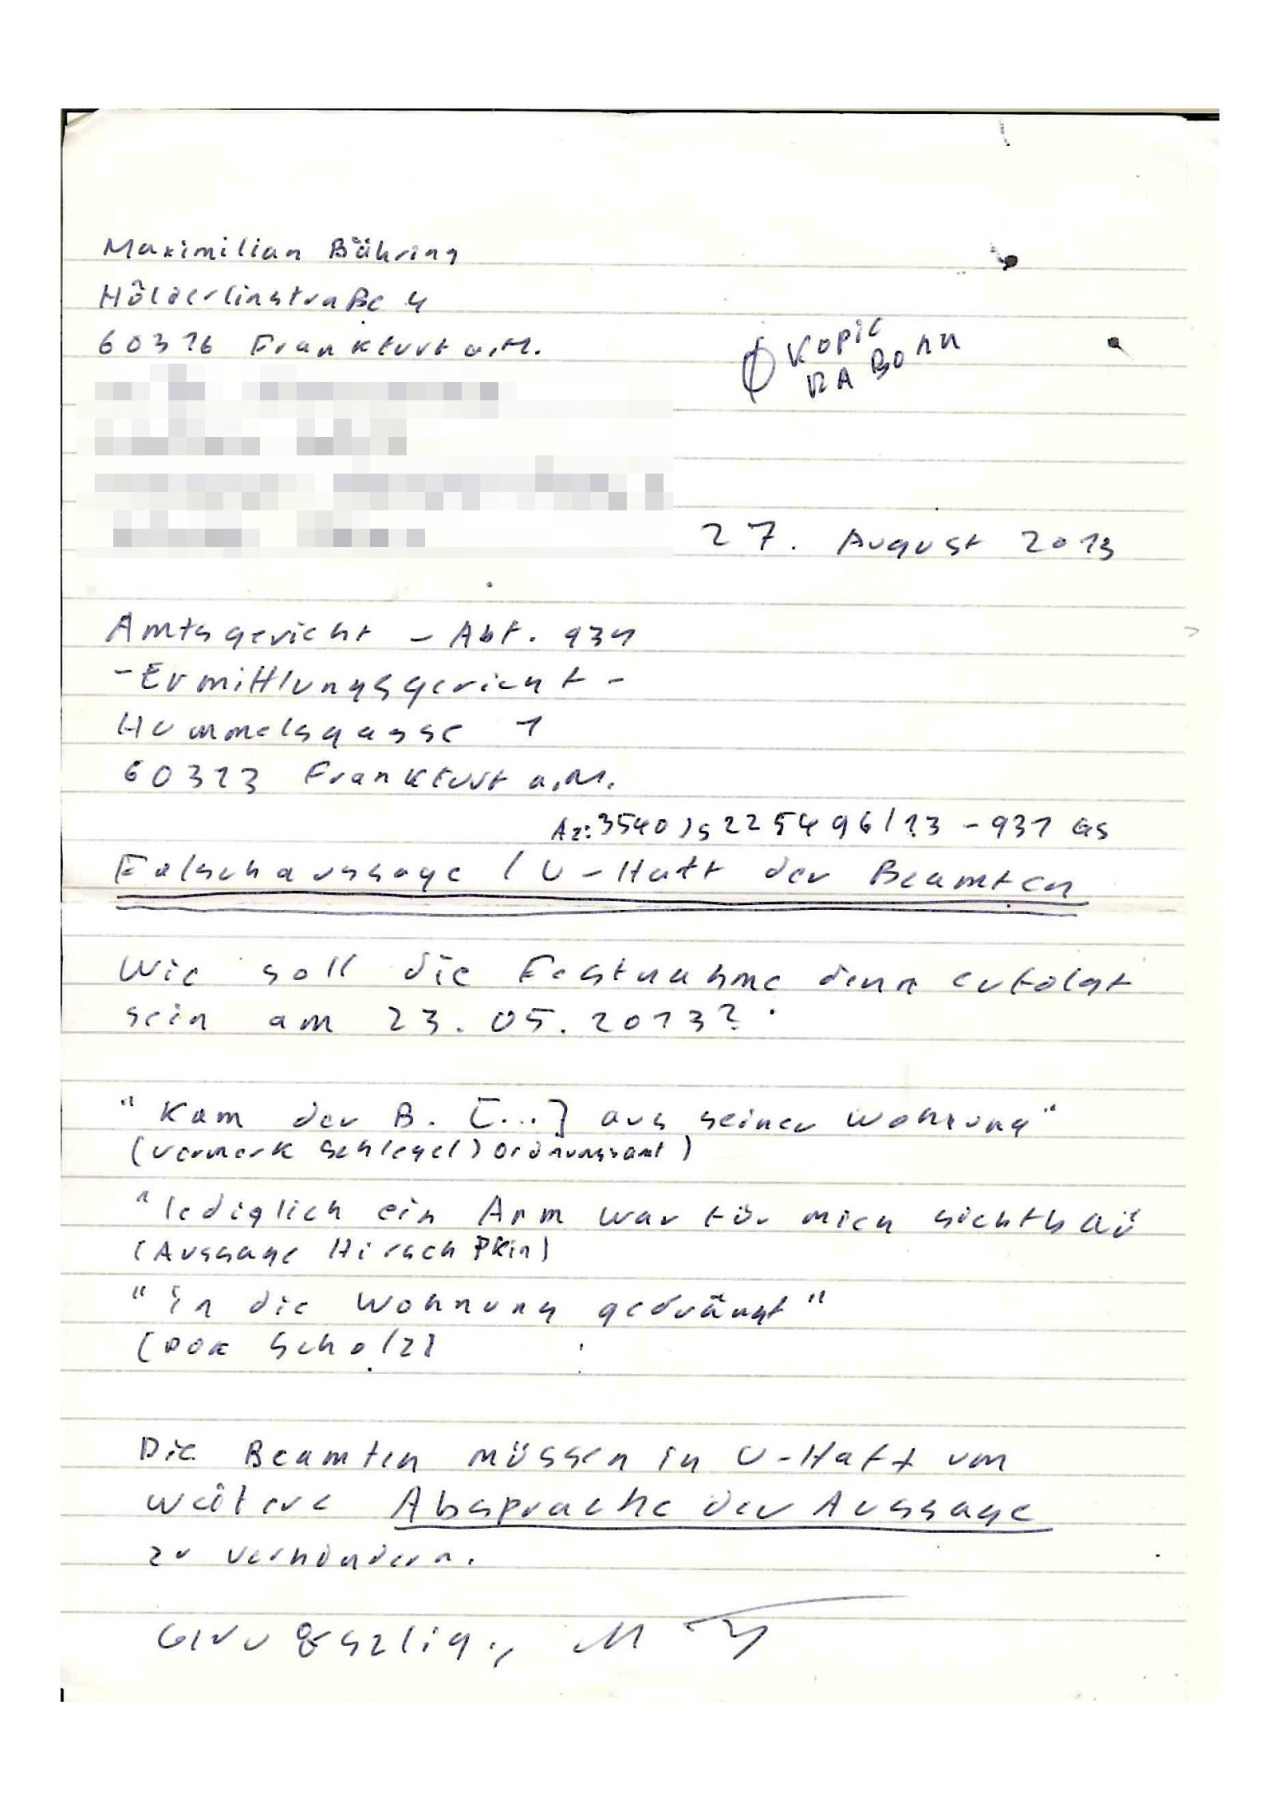 Maximilian Bähring
Hölderlinstraße 4
60316 Frankfurt a.M.
Kopie
RA Bonn
27. August 2013
Amtsgericht - Abt. 931
- Ermittlungsgericht -
Hammelsgasse 1
60313 Frankfurt a.M.
Az: 3540 Js 225496/13 - 931 Gs
Falschaussage / U-Haft der Beamten
Wie soll die Festnahme denn erfolgt
sein am 23.05.2013?
"Kam der B. [...] aus seiner Wohnung"
(Vermerk Schlegel) Ordnungsamt)
"lediglich ein Arm war für mich sichtbar
(Aussage Hirsch PKin)
"in die Wohnung gedrängt"
(POK Scholz)
Die Beamten müssen in U-Haft um
weitere Absprache der Aussage
zu verhindern.